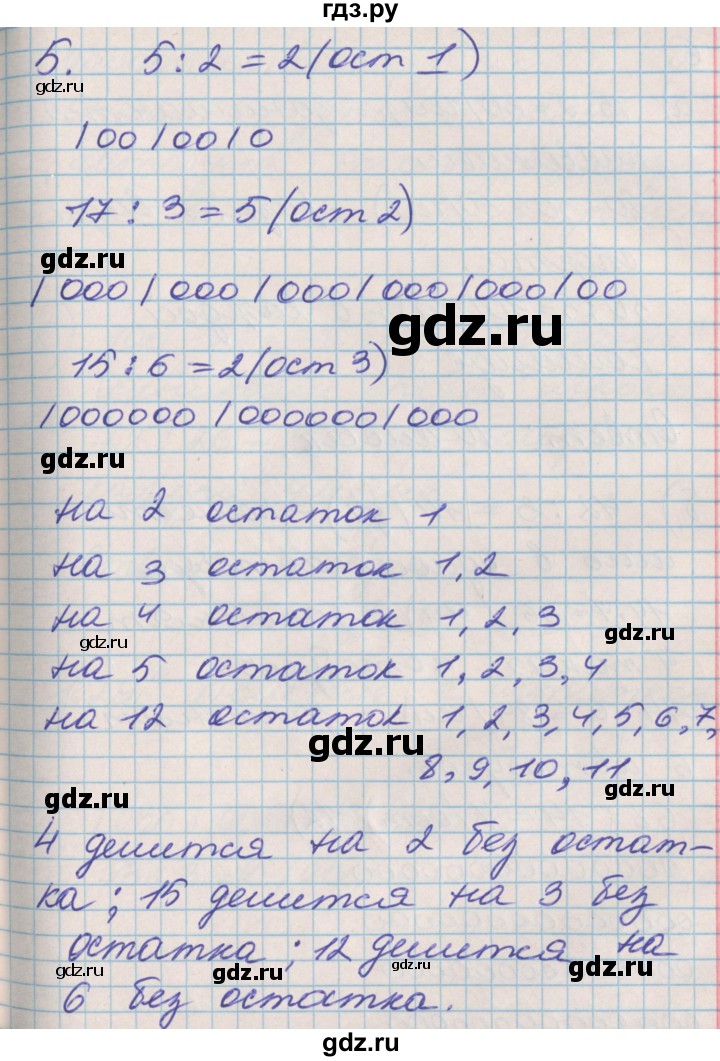 гдз.ру
5. 5 : 2 = 2 (ост 1)
gdz.ru
/ 00 / 00 / 0
17 : 3 = 5 (ост 2)
gdz.ru
/ 000 / 000 / 000 / 000 / 000 / 00
gdz.ru
15 : 6 = 2 (ост 3)
/ 000000 / 000000 / 000
gdz.ru
на 2 остаток 1
на 3 остаток 1, 2
на 4 остаток 1, 2, 3
gdz.ru gdz.ru
на 5 остаток 1, 2, 3, 4
на 12 остаток 1, 2, 3, 4, 5, 6, 7,
gdz.ru
8, 9, 10, 11
gdz.ru gdz.ru
4 делится на 2 без остат-
ка ; 15 делится на 3 без
остатка ; 12 делится на
gdz.ru gdz.ru gdz.ru gdz.ru
6 без остатка.
gdz.ru